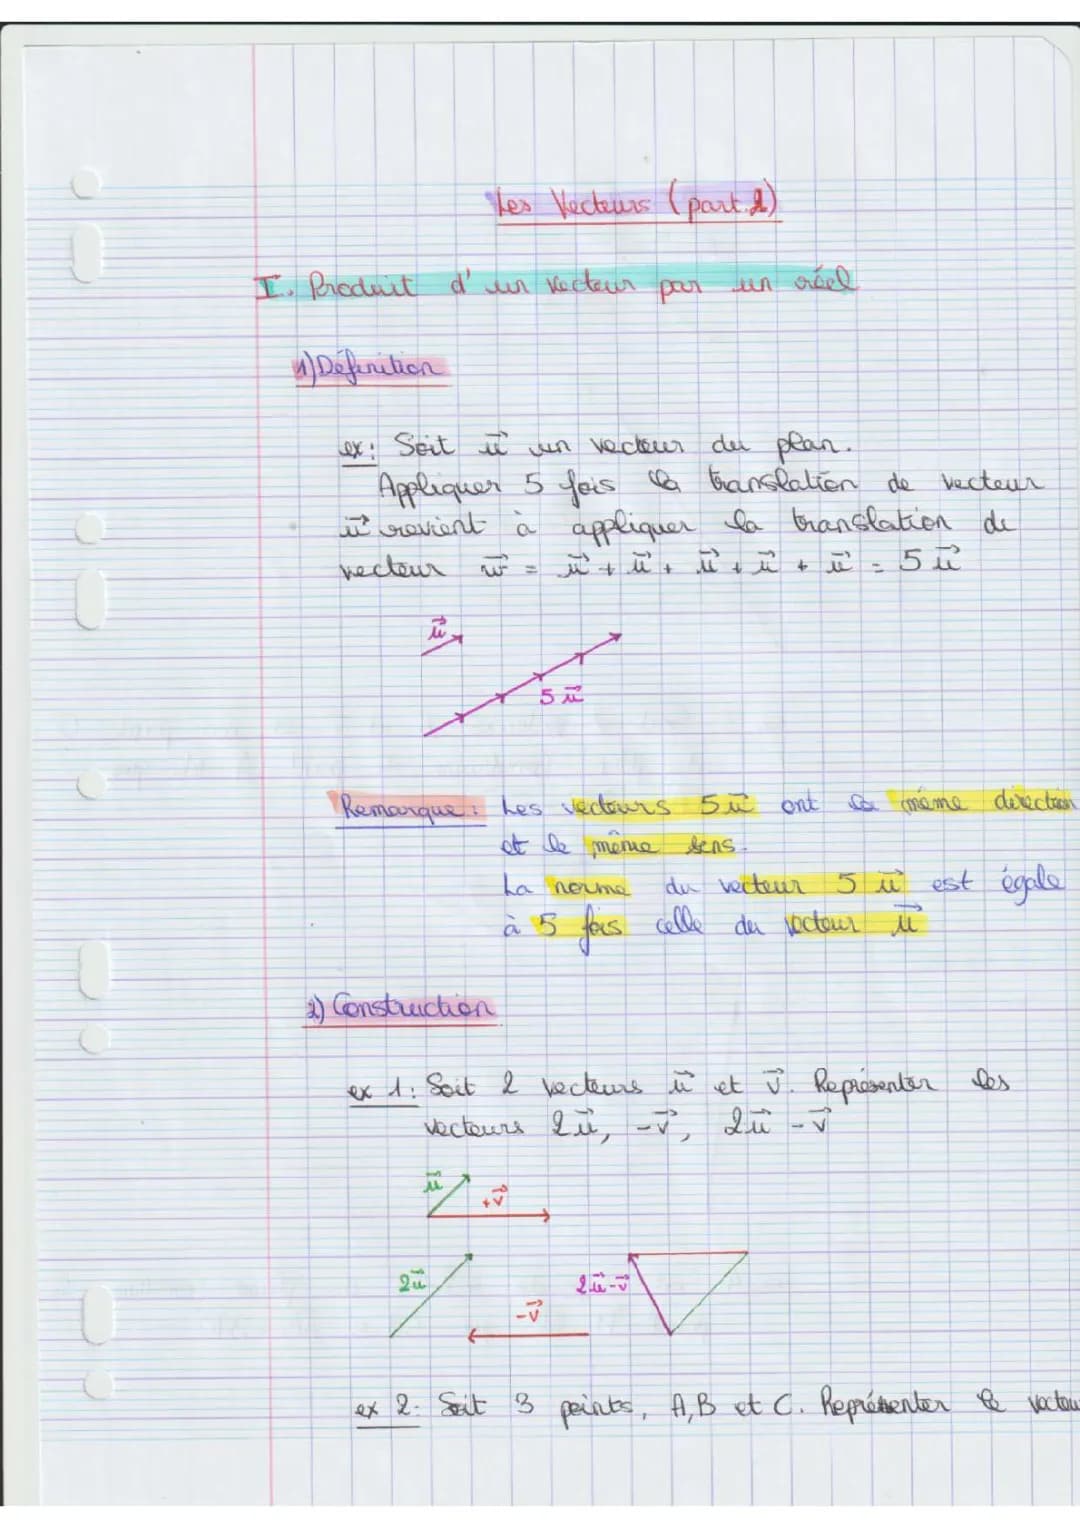 Les Vecteurs (part.2)
I. Produit d'un vecteur par un réel
1) Définition
ex: Soit u⃗ un vecteur du plan.
Appliquer 5 fois la translation de vecteur
u⃗ revient à appliquer la translation de
vecteur w⃗ = u⃗ + u⃗ + u⃗ + u⃗ + u⃗ = 5u⃗
u⃗
5u⃗
Remarque: Les vecteurs 5u⃗ ont la même direction
et le même sens.
La norme du vecteur 5u⃗ est égale
à 5 fois celle du vecteur u⃗
2) Construction
ex 1: Soit 2 vecteurs u⃗ et v⃗. Représenter les
vecteurs 2u⃗, -v⃗, 2u⃗ - v⃗
u⃗
+v⃗
2u⃗
-v⃗
2u⃗-v⃗
ex 2: Soit 3 points, A,B et C. Représenter le vecteur